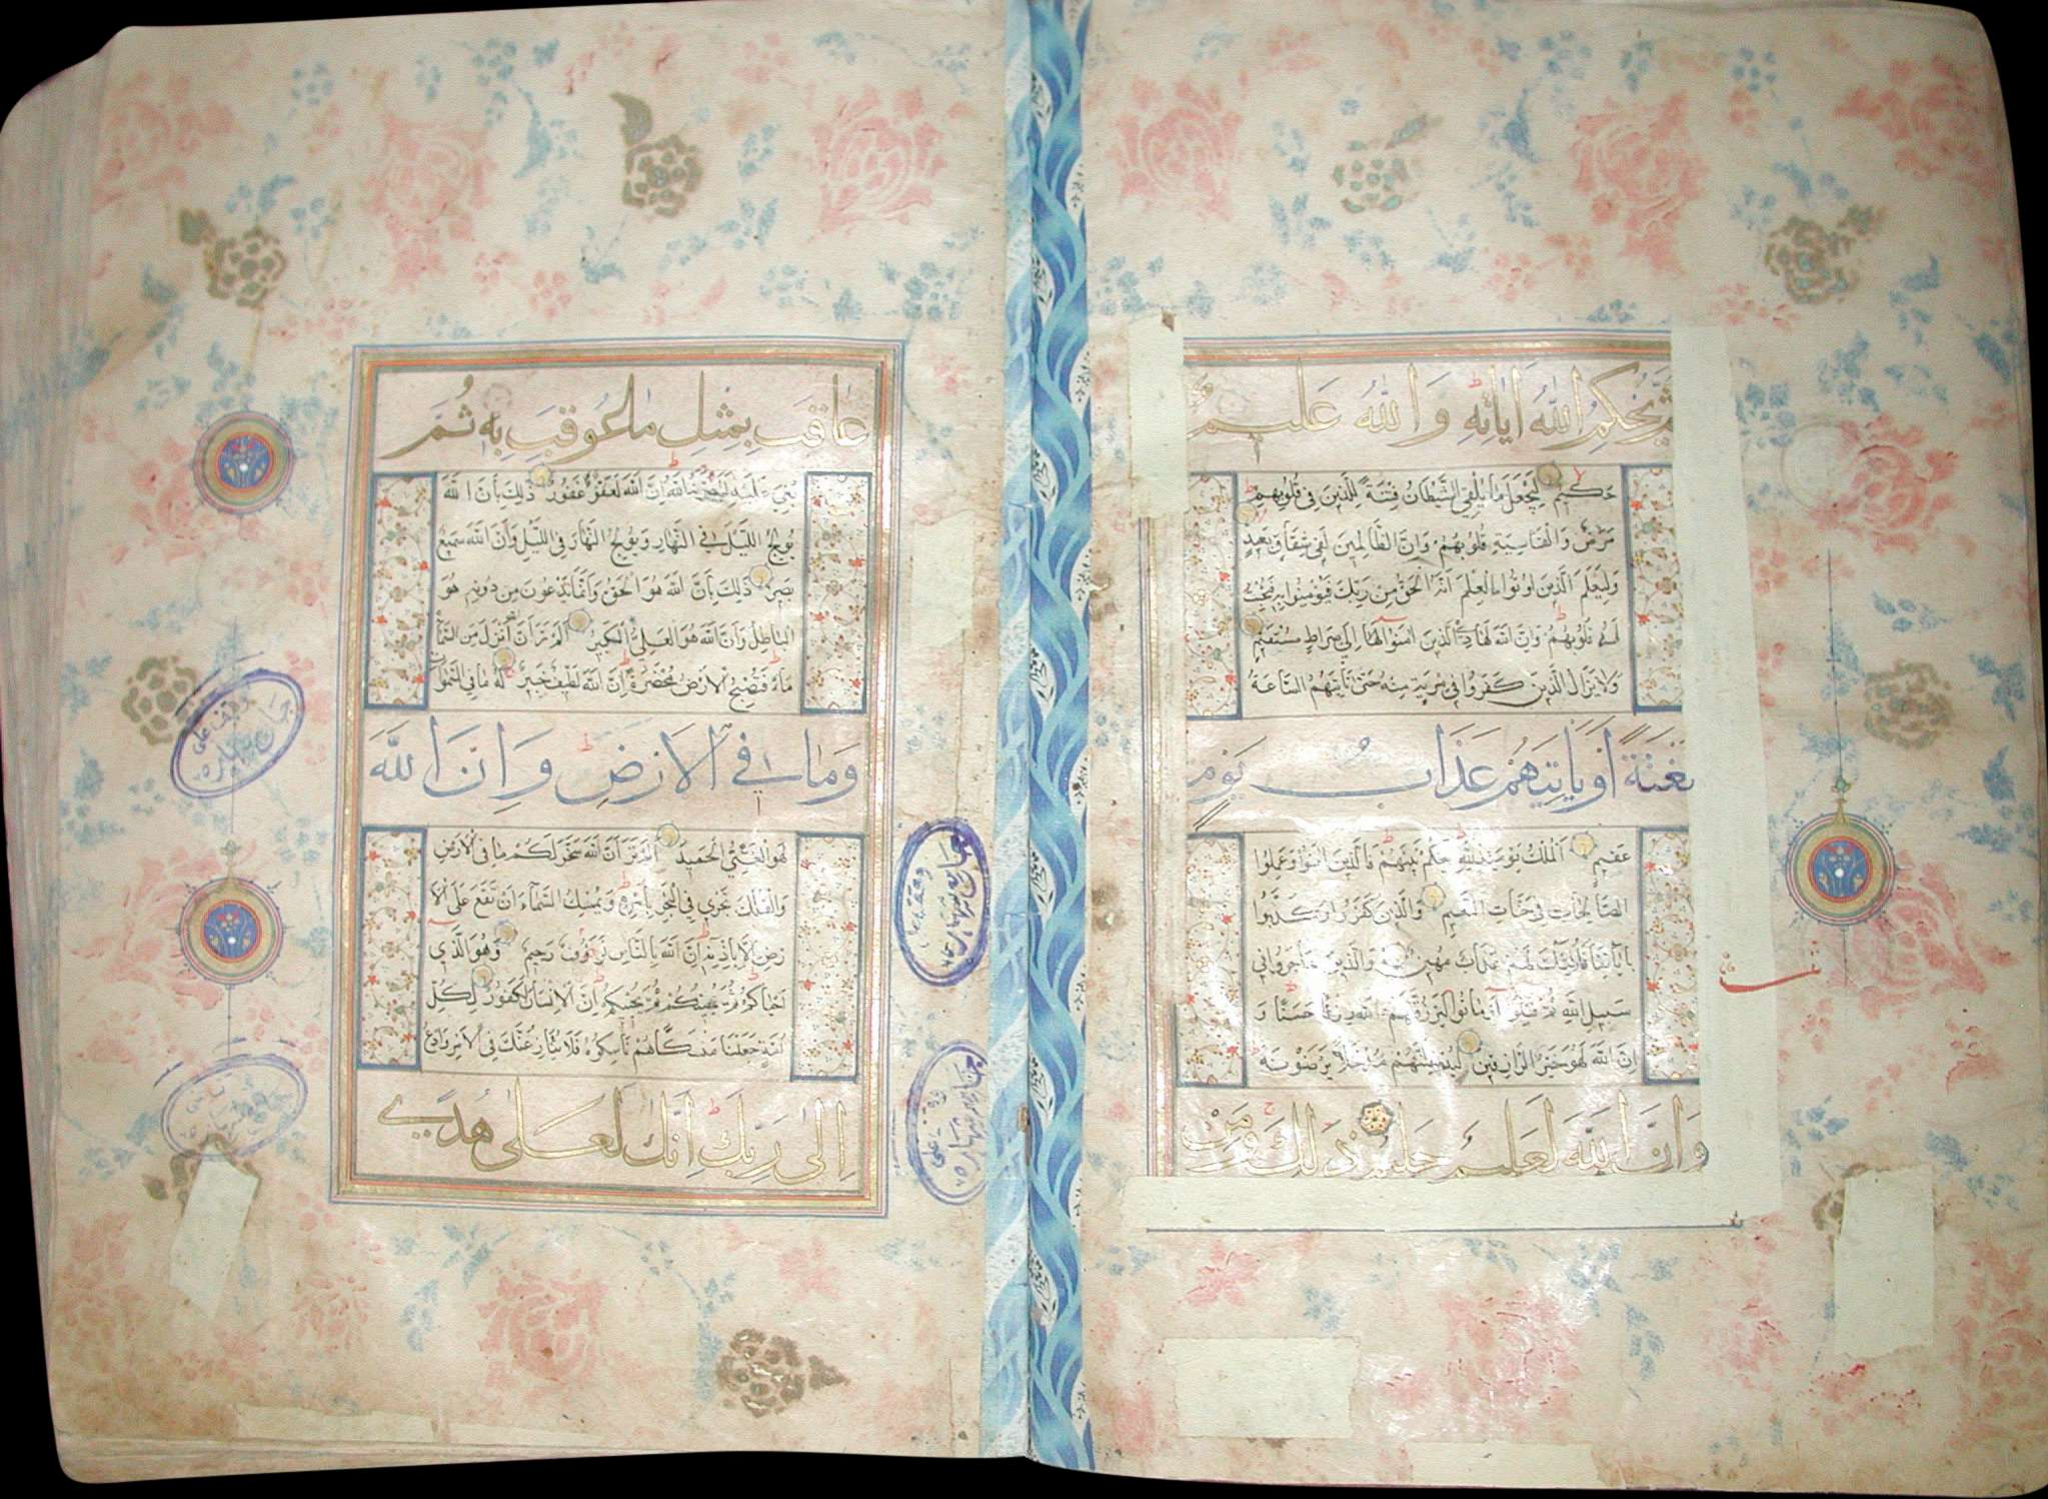 ثم يحكم الله اياته والله عليم
حكيم ليجعل ما يلقي الشيطان فتنة للذين في قلوبهم
مرض والقاسية قلوبهم وان الظالمين لفي شقاق بعيد
وليعلم الذين اوتوا العلم انه الحق من ربك فيؤمنوا به فتخبت
له قلوبهم وان الله لهاد الذين امنوا الى صراط مستقيم
ولا يزال الذين كفروا في مرية منه حتى تاتيهم الساعة
بغتة او ياتيهم عذاب يوم
عقيم الملك يومئذ لله يحكم بينهم فالذين امنوا وعملوا
الصالحات في جنات النعيم والذين كفروا وكذبوا
باياتنا فاولئك لهم عذاب مهين والذين هاجروا في
سبيل الله ثم قتلوا او ماتوا ليرزقنهم الله رزقا حسنا و
ان الله لهو خير الرازقين ليدخلنهم مدخلا يرضونه
وان الله لعليم حليم ذلك ومن
عاقب بمثل ما عوقب به ثم
بغي عليه لينصرنه الله ان الله لعفو غفور ذلك بان الله
يولج الليل في النهار ويولج النهار في الليل وان الله سميع
بصير ذلك بان الله هو الحق وانما تدعون من دونه هو
الباطل وان الله هو العلي الكبير الم تر ان الله انزل من السماء
ماء فتصبح الارض مخضرة ان الله لطيف خبير له ما في السموات
وما في الارض وان الله
لهو الغني الحميد الم تر ان الله سخر لكم ما في الارض
والفلك تجري في البحر بامره ويمسك السماء ان تقع على الا
رض الا باذنه ان الله بالناس لرؤف رحيم وهو الذي
احياكم ثم يميتكم ثم يحييكم ان الانسان لكفور لكل
امة جعلنا منسكا هم ناسكوه فلا ينازعنك في الامر وادع
الى ربك انك لعلى هدى